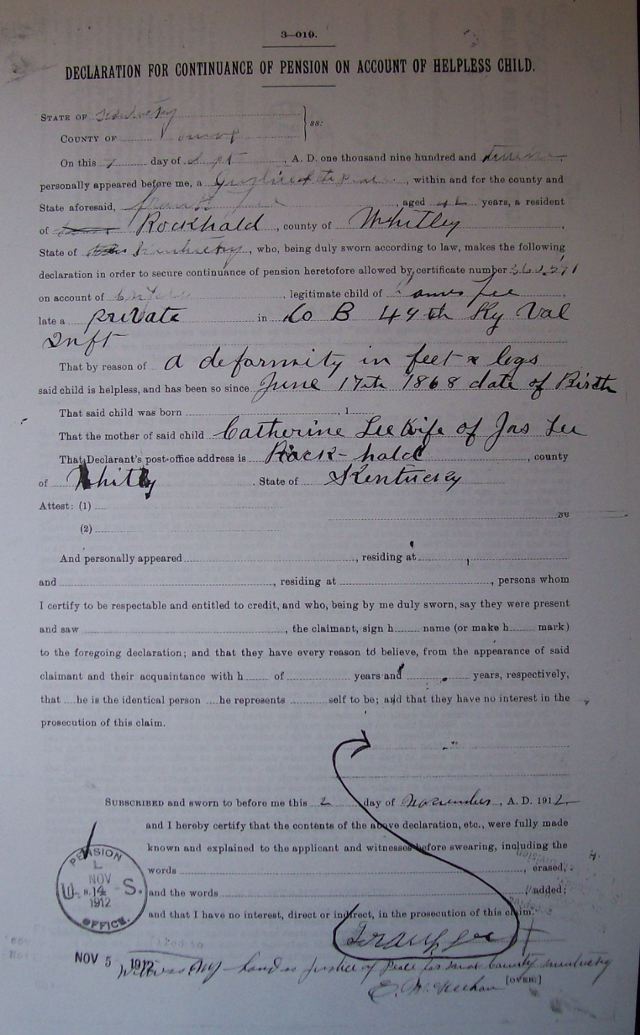 3—019.
DECLARATION FOR CONTINUANCE OF PENSION ON ACCOUNT OF HELPLESS CHILD.
STATE OF Kentucky
COUNTY OF } ss:
On this day of Sept, A. D. one thousand nine hundred and
personally appeared before me, a, within and for the county and
State aforesaid, aged years, a resident
of Rockhald, county of Whitley
State of Kentucky, who, being duly sworn according to law, makes the following
declaration in order to secure continuance of pension heretofore allowed by certificate number
on account of, legitimate child of James Lee
late a private in Co B 49th Ky Val
Inft
That by reason of a deformity in feet & legs
said child is helpless, and has been so since June 17th 1868 date of Birth
That said child was born, 1
That the mother of said child Catherine Lee Wife of Jas Lee
That Declarant's post-office address is Rock-hald, county
of Whitly. State of Kentucky
Attest: (1)
(2)
And personally appeared, residing at
and, residing at, persons whom
I certify to be respectable and entitled to credit, and who, being by me duly sworn, say they were present
and saw, the claimant, sign h name (or make h mark)
to the foregoing declaration; and that they have every reason to believe, from the appearance of said
claimant and their acquaintance with h of years and years, respectively,
that he is the identical person he represents self to be; and that they have no interest in the
prosecution of this claim.
SUBSCRIBED and sworn to before me this 2 day of November, A. D. 1912
and I hereby certify that the contents of the above declaration, etc., were fully made
known and explained to the applicant and witnesses before swearing, including the
words, erased,
and the words, added;
and that I have no interest, direct or indirect, in the prosecution of this claim.
PENSION
L
NOV
U. S. 14
1912
OFFICE.
Frank Lee
NOV 5 1912
Witness My hand as Justice of Peace for said County Kentucky
[OVER.]